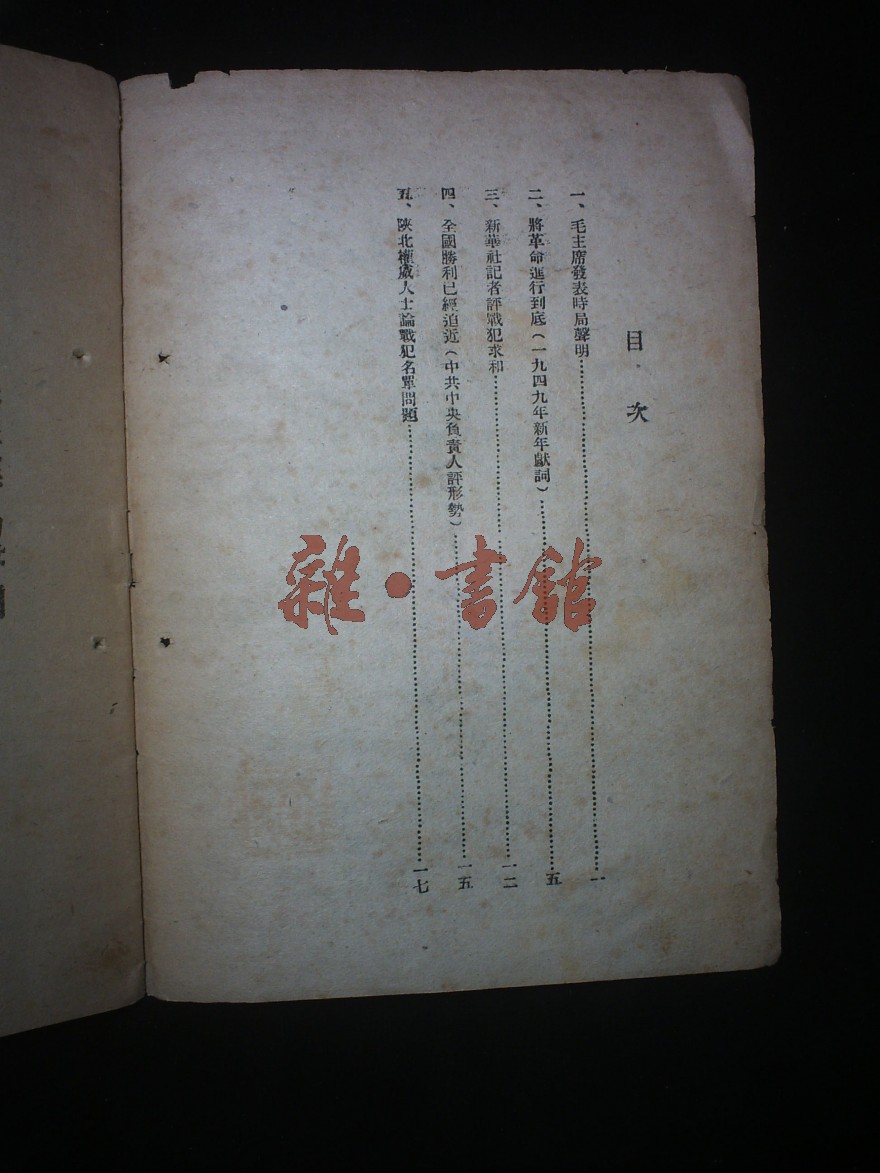 目次
一、毛主席發表時局聲明……一
二、將革命進行到底(一九四九年新年獻詞)……五
三、新華社記者評戰犯求和……一二
四、全國勝利已經迫近(中共中央負責人評形勢)……一五
五、陝北權威人士論戰犯名單問題……一七
雜·書館